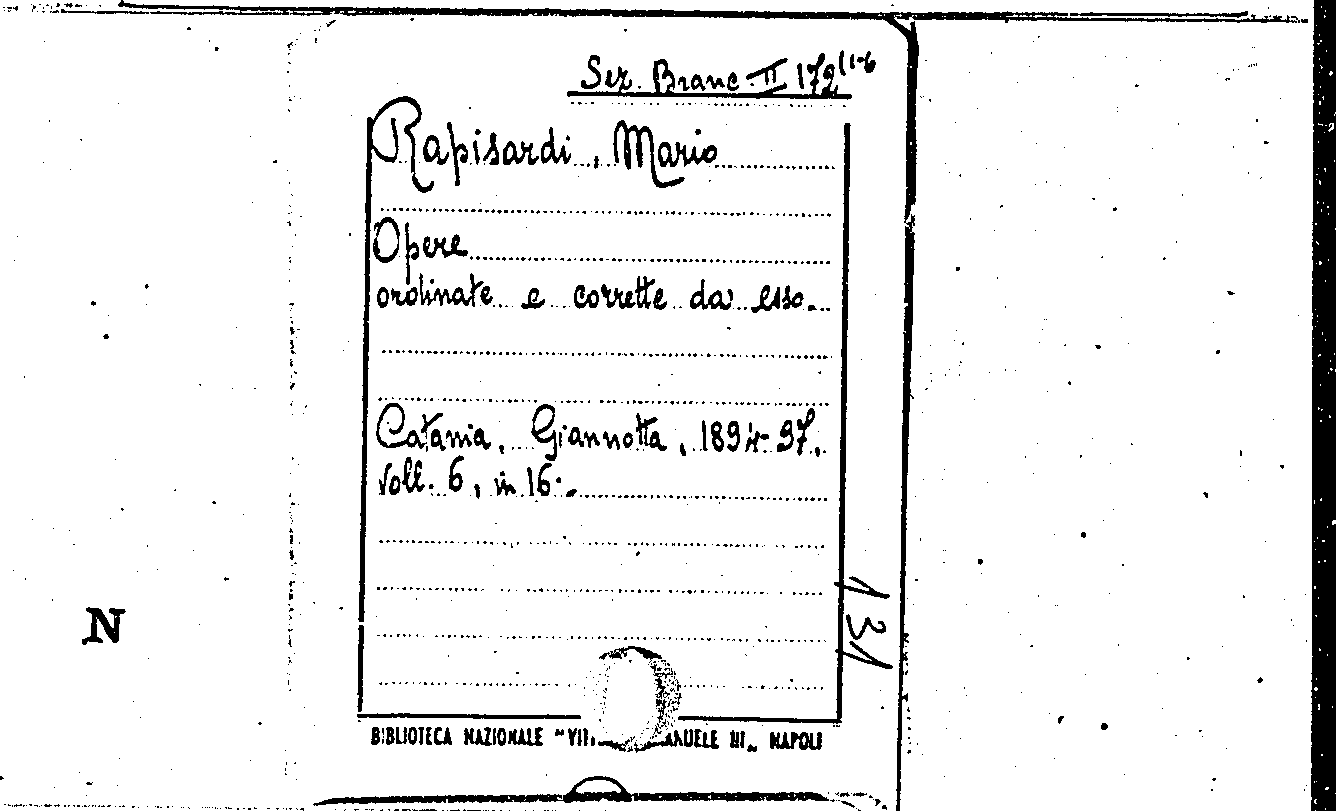 Sez. Branc. II 172(1-6
Rapisardi, Mario
Opere
ordinate e corrette da esso.
Catania, Giannotta, 1894-97.
Voll. 6, in 16°.
131
N
BIBLIOTECA NAZIONALE "VITT ANUELE III„ NAPOLI